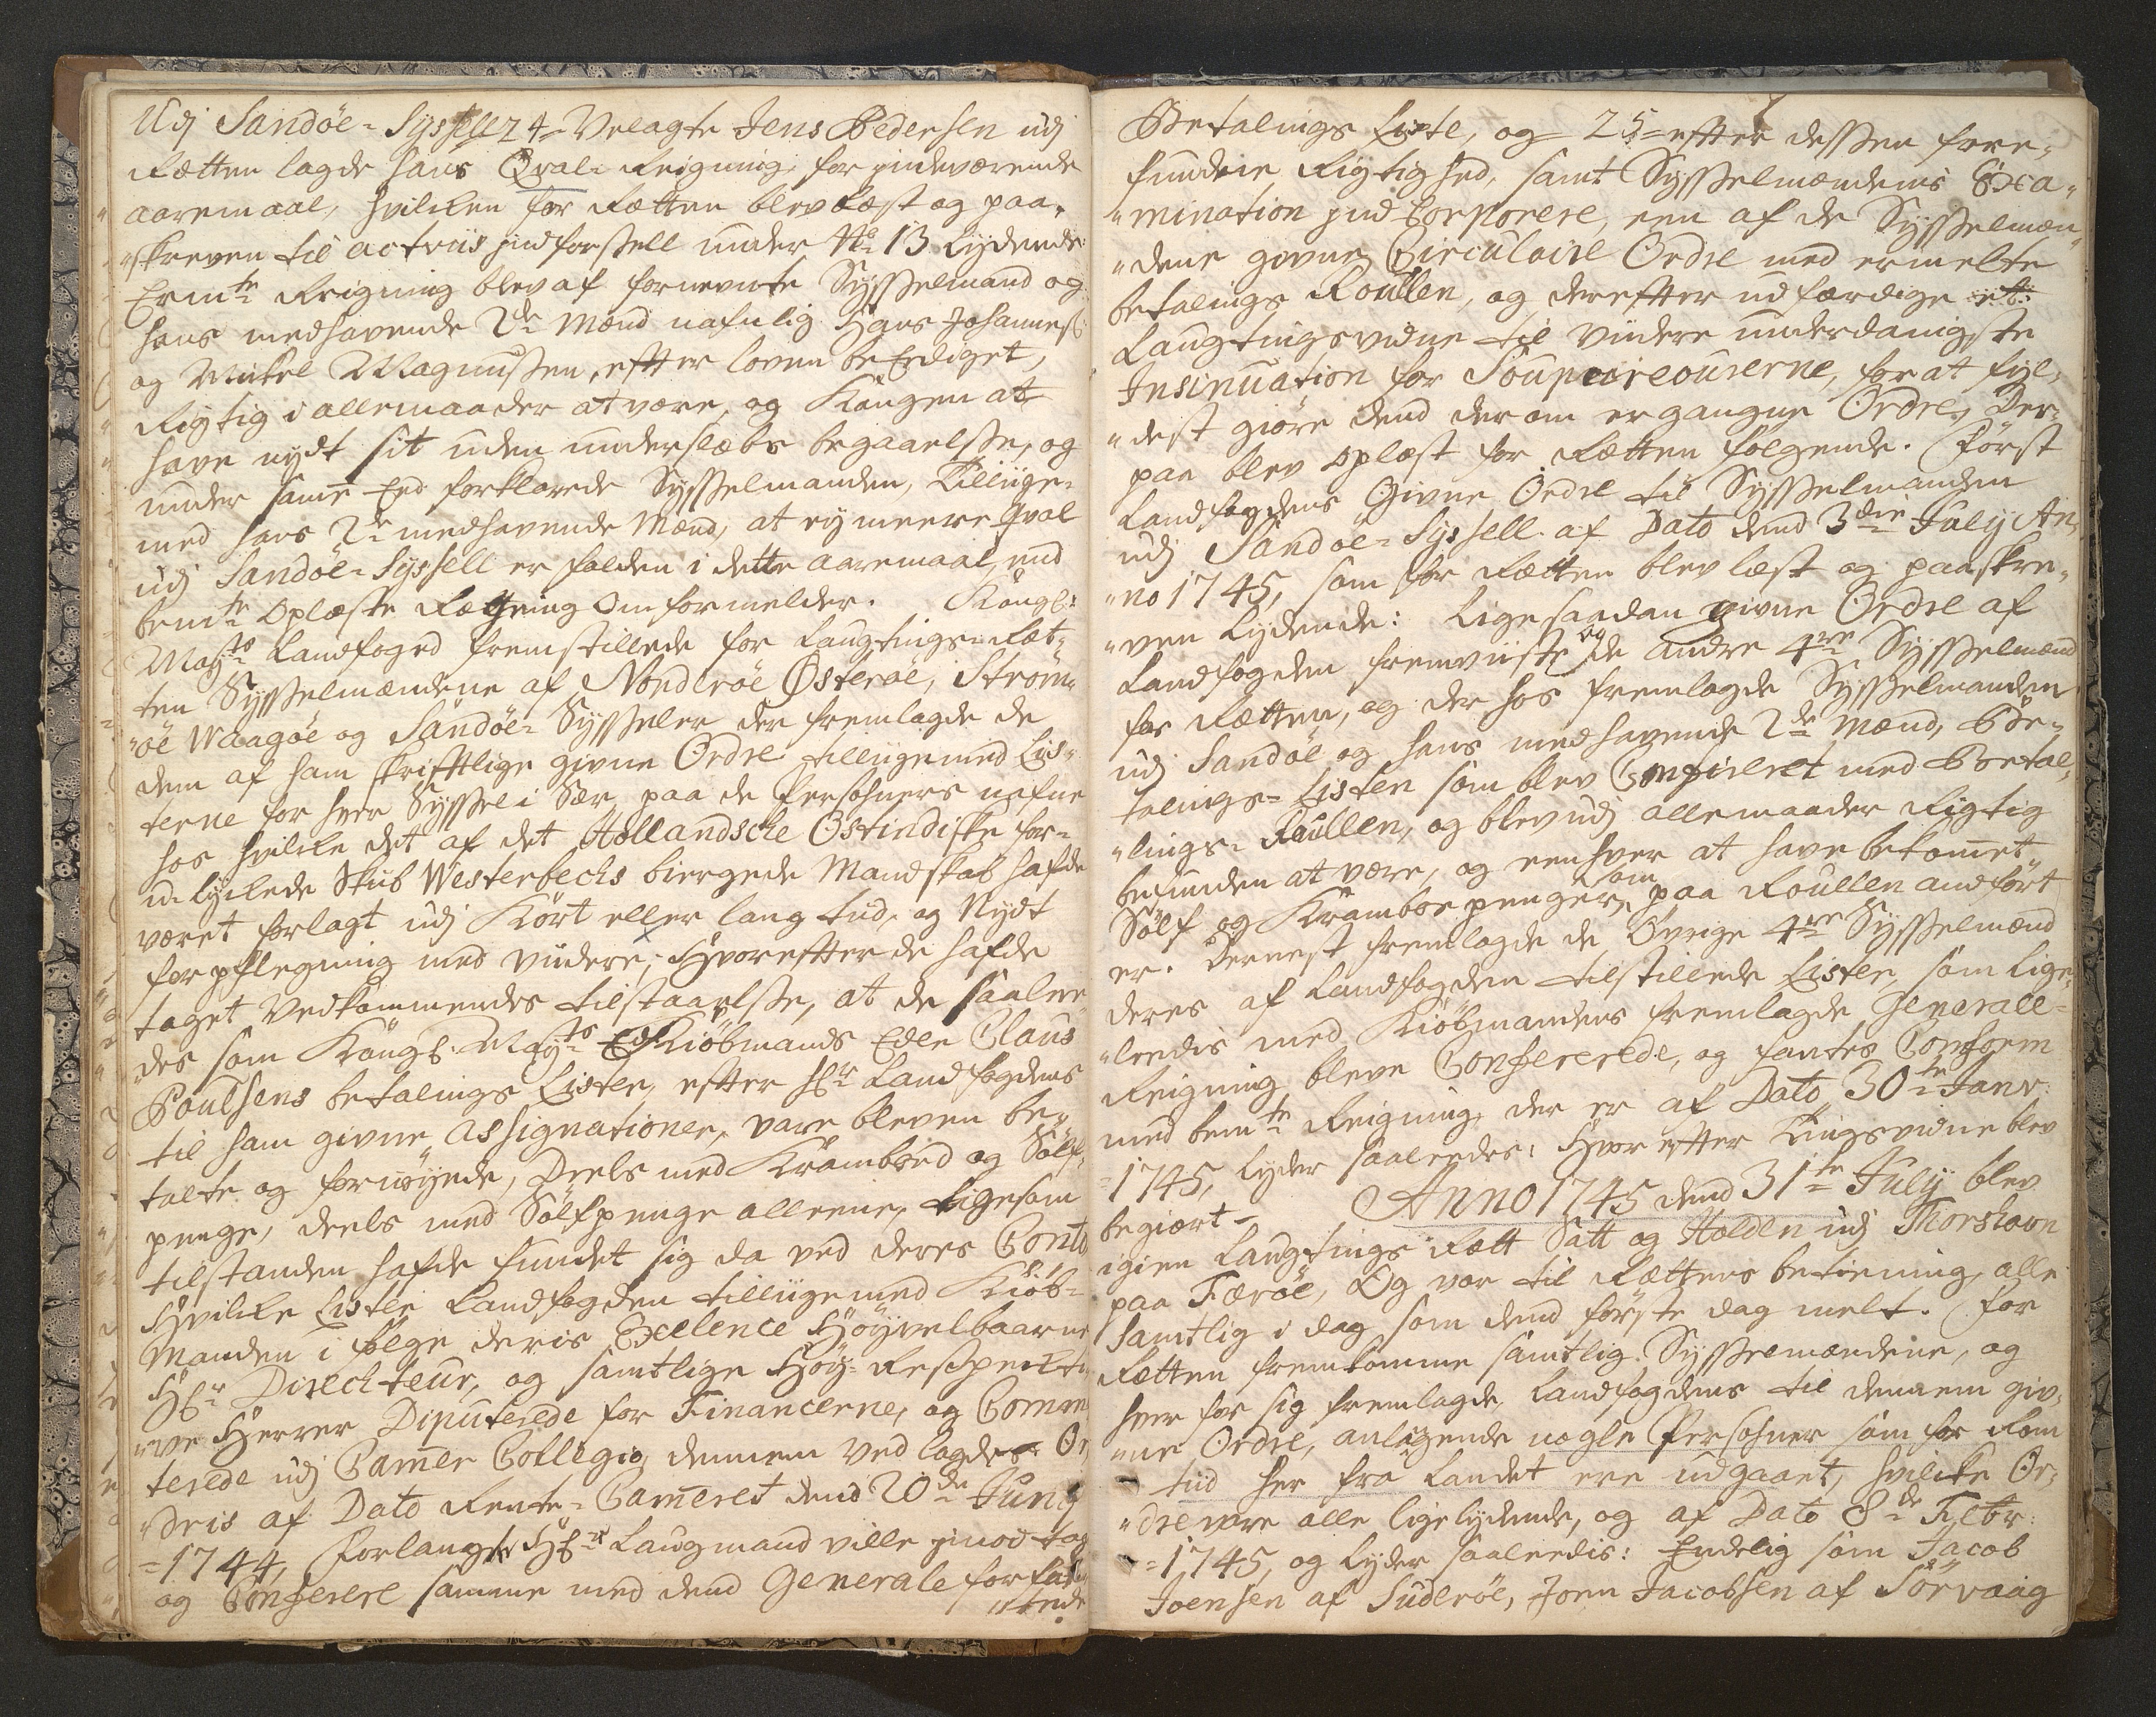 Udj Sandöe-Syssell 24 Velagte Jens Pedersen udj
Rætten lagde hans Qval-Reigning for indeværende
aaremaal, hvilken for Rætten blev læst og paa-
skreven til actriis indforsell under No 13 Lydende:
Ermte Reigning blev af fornevnte Sysselmand og
hans medhavende 2de Mænd nafnlig Hans Johannes:
og Mikel Magnussen, efter loven be Eediget,
Rigtig i allemaader at være, og Kongen at
have nydt sit uden underslæbs begaaelsse, og
under samme Eed forklarede Sysselmanden, Tillige-
med hans 2de medhavende Mænd, at ey meere Qval
udj Sandöe-Syssell er falden i dette aaremaal, end
bemte Oplæste Rægning Om formelder. Kongl:
Maysts Landfoged fremstillede for Laugtings-Ræt-
ten Sysselmændene af Norderöe Österöe, Ström-
öe Waagöe og Sandöe-Sysseler der fremlagde de
dem af ham skrifftlige givne Ordre tilligemed Lis-
terne for hver Syssel i Sær, paa de Persohners nafne
hos hvilke det af det Hollandsche Ostindiske for-
u-lyckede Skib Westerbechs biergede Mandskab hafde
været forlagt udj Kort eller lang tiid, og Nydt
forpflegning med viidere; Hvorefter de hafde
taget Vedkommendes tilstaaelsse, at de saalee-
des som Kongl. Maysts Kiöbmands Eder Claus
Poulsens betalings Lister, efter Hr Landfogdens
til ham givne Assignationer, vare bleven be-
talte og fornöyede, Deels med Krambod og Sölf-
penge, deels med Sölfpenge alleene, Ligesom
tilstanden hafde fundet sig da ved deres Conto
Hvilke Lister Landfogden tilligemed Kiöb-
manden i fölge deris Excelence Höyvelbaarne
Hr Directeur, og samtlige Höy-Respekti-
ve Herrer Diputerede for Financerne, og Comm
terede udj Camer Collegio, dennem ved lagde Or
dris af Dato Rente-Cameret dend 20de Juny
1744, forlangte Hr Laugmand ville imod tag
og Conferere samme med dend Generale forfat-
tende
Betalings Liste, og 25 efter dessen fore-
fundene Rigtighed, samt Sysselmændenis Exa-
mination ind Corporere, een af de Sysselmæn-
dene givne Circulaire Ordre med ermelte
betalings Roullen, og derefter udfærdige et
Laugtingsvidne til viidere underdanigste
Insinuation for Soupcireouserne, for at fyl-
dest giöre dend derom ergangne Ordre, Der-
paa blev oplæst for Rætten fölgende. Först
Landfogdens Givne Ordre til Sysselmanden
udj Sandöe-Syssell af Dato dend 3die July An-
no 1745, som for Rætten blev læst og paaskre-
ven lydende: Ligesaadan givne Ordre af
Landfogden fremviiste og de andre 4re Sysselmænd
for Rætten, og der hos fremlagde Sysselmanden
udj Sandöe og hans medhavende 2de Mænd, Be-
talings-Listen som blev Confereret med Betal-
lings-Roullen, og blev udj allemaader Rigtig
befunden at være, og eenhver at have bekommet
Sölf og Krambos penger, som paa Roullen andfört
er. Dernest fremlagde de Övrige 4re Sysselmænd
deres af Landfogden tilstillede Lister, som Lige-
leedis med Kiöbmandens fremlagde Generale-
Reigning bleve Confererede, og fantes Comform
med bemte Reigning, der er af Dato 30te Janv:
1745, lyder saaleedes: Hvor efter Tingsvidne blev
begiært- Anno 1745 dend 31te July blev
igien Laugtings Rætt Satt og Holden udj Thorshavn
paa Færöe, Og var til Rættens betiening, alle
samtlig i dag som dend förste dag melt. For
Rætten fremkomme samtlig Sysselmændene, og
hver for sig fremlagde Landfogdens til dennem giv-
ne Ordre, anlagende nogle Persohner som for Rom
tiid her fra Landet ere udgaaet, hvilke Or-
dre vare alle ligelydende, og af Dato 8de Febr:
1745, og lyder saaleedis: Endelig som Jacob
Joensen af Suderöe, Joen Jacobsen af Sörvaag